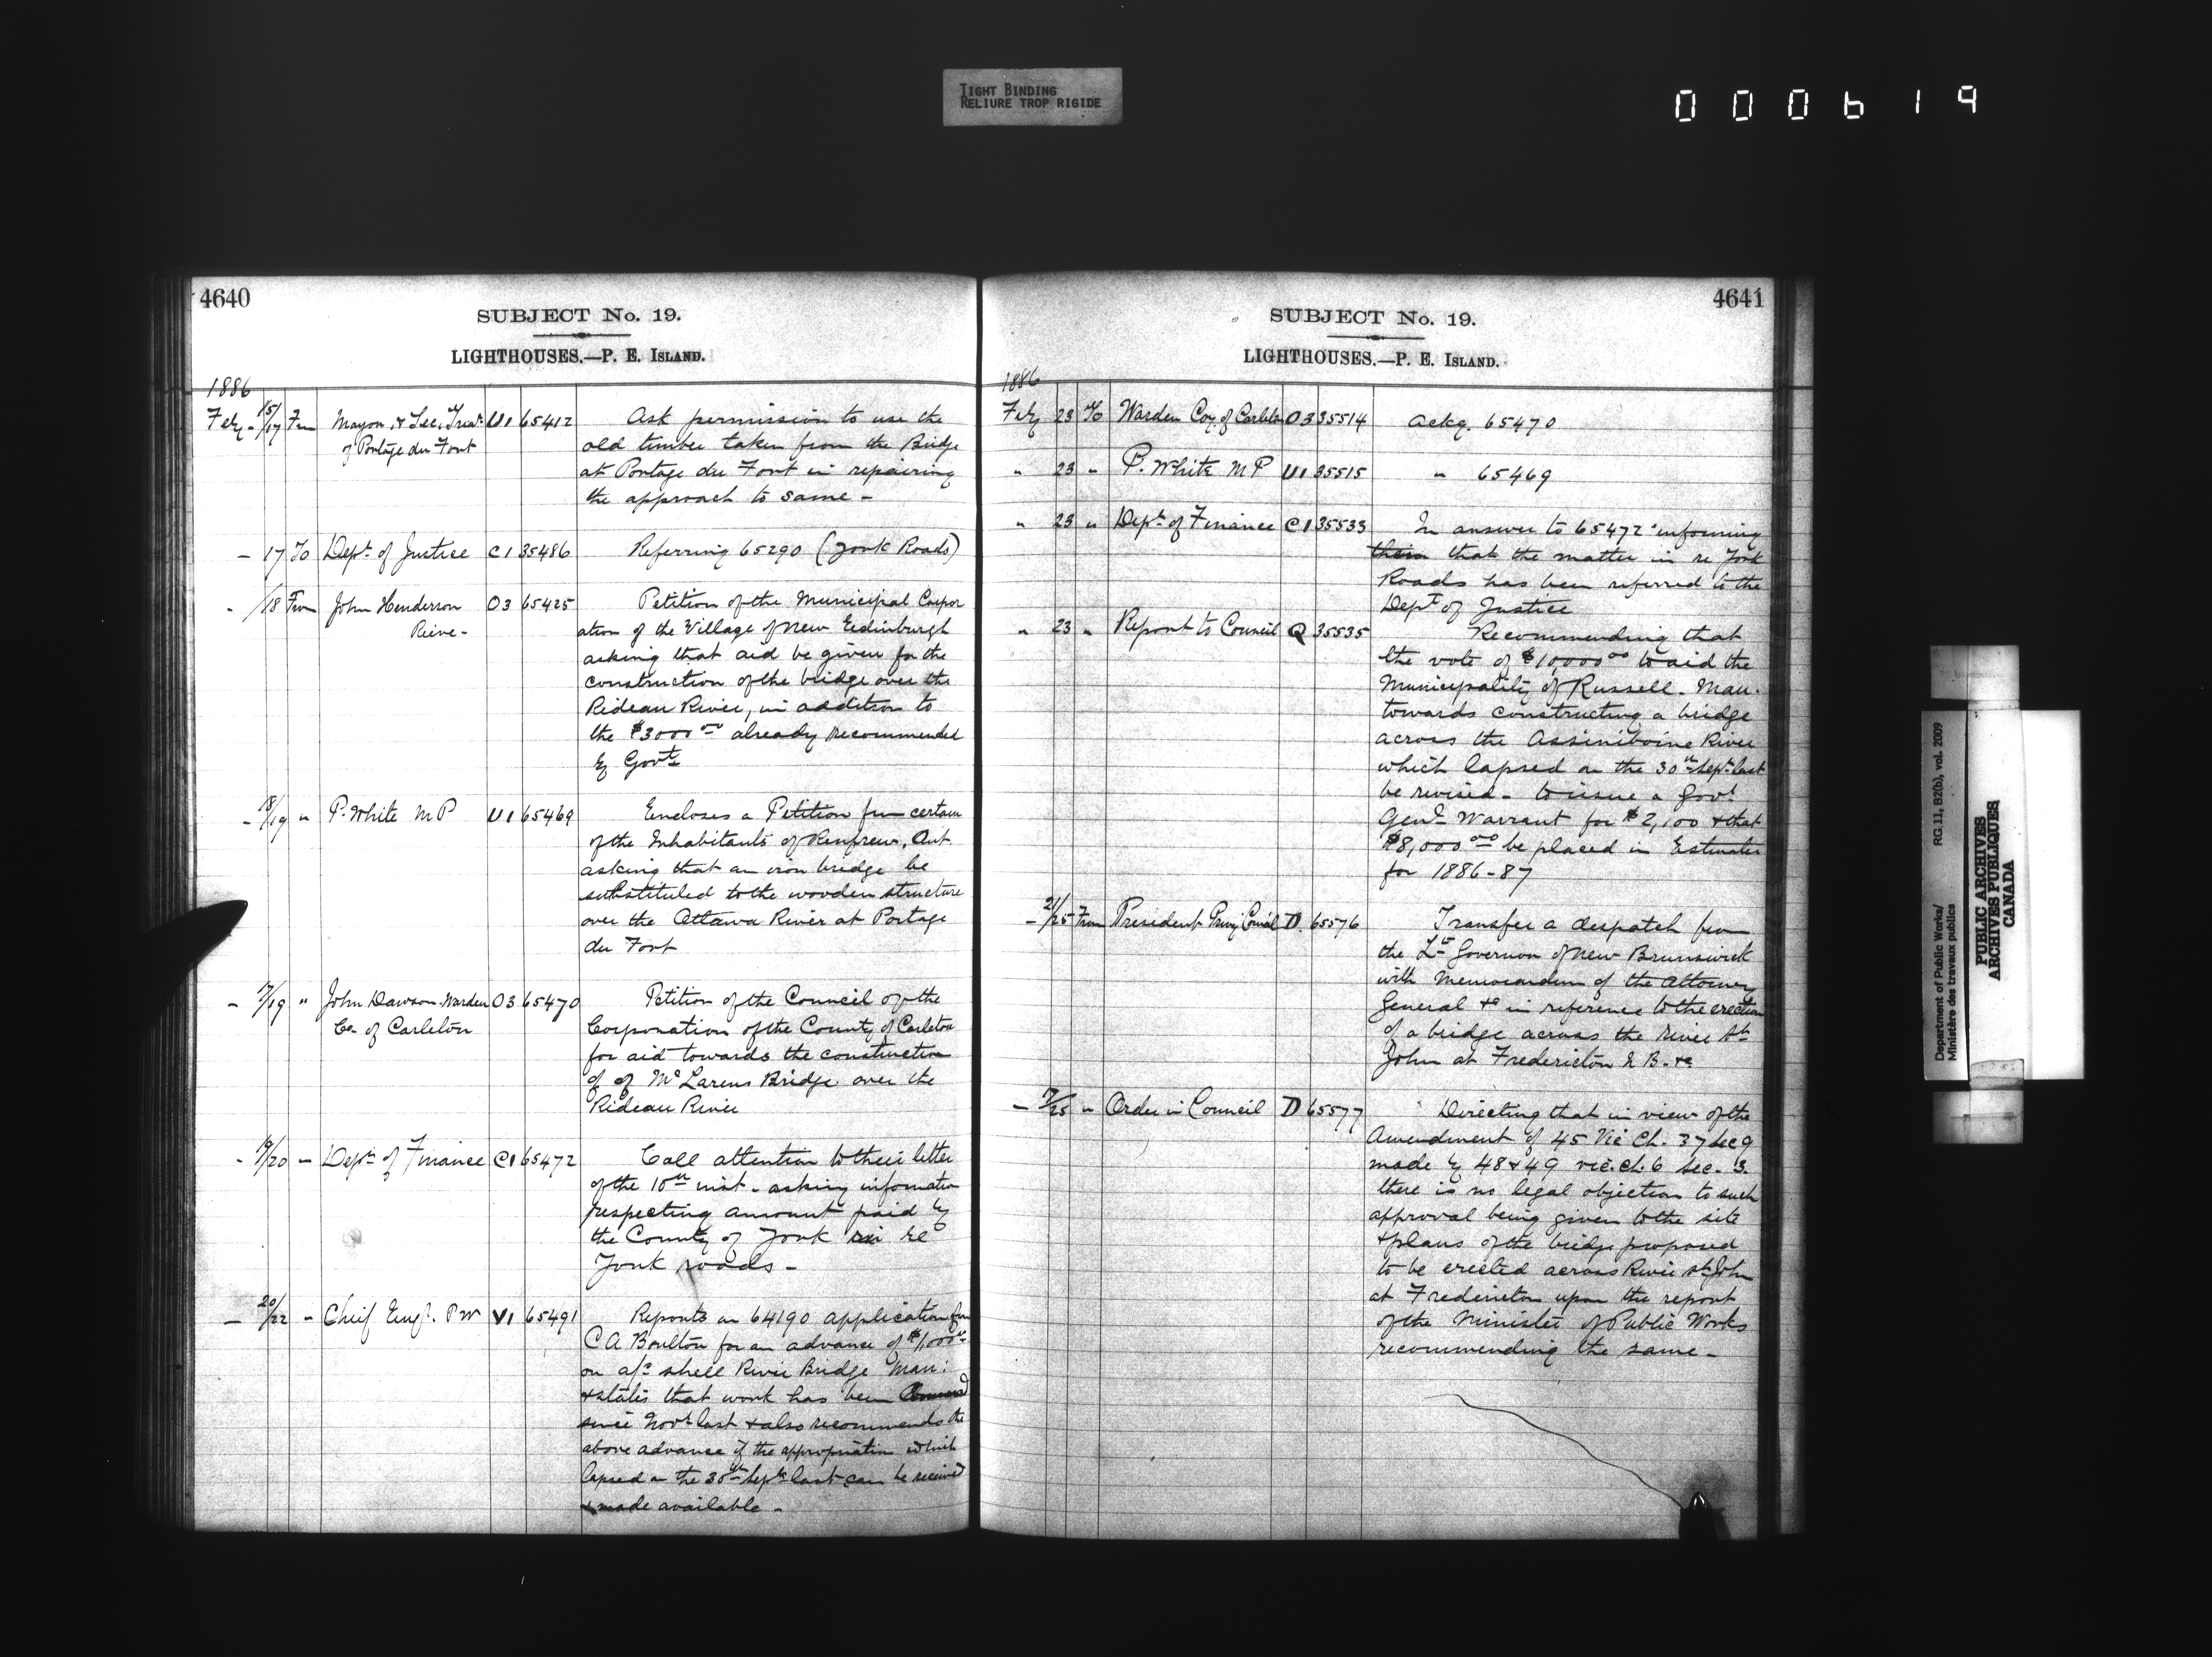 TIGHT BINDING
RELIURE TROP RIGIDE
000619
4640
SUBJECT No. 19.
LIGHTHOUSES.—P. E. ISLAND.
1886
Feby - 15/17 Fm Mayor, & Sec. Treasr U1 65412 Ask permission to use the
of Portage du Fort old timber taken from the Bridge
at Portage du Fort in repairing
the approach to same -
- 17 To Dept. of Justice C1 35486 Referring 65290 (York Roads)
- /18 From John Henderson O3 65425 Petition of the Municipal Corpor
Reeve - ation of the Village of New Edinburgh
asking that aid be given for the
construction of the bridge over the
Rideau River, in addition to
the $3000 00 already recommended
by Govt
- 18/19 " P. White M P U1 65469 Encloses a Petition from certain
of the Inhabitants of Renfrew, Ont.
asking that an iron bridge be
substituted to the wooden structure
over the Ottawa River at Portage
du Fort
- /19 " John Dawson Warden O3 65470 Petition of the Council of the
Co. of Carleton Corporation of the County of Carleton
for aid towards the construction
of of McLarens Bridge over the
Rideau River
- 19/20 - Dept. of Finance C1 65472 Call attention to their letter
of the 10th inst - asking information
respecting amount paid by
the County of York in re
York roads -
- 20/22 - Cheif Engr. P W V1 65491 Reports on 64190 application from
C A Boulton for an advance of $1,000 00
on a/c Shell River Bridge Man:
& states that work has been
since Novr last & also recommends the
above advance if the appropriation which
lapsed on the 30th Septr last can be revived
& made available -
4641
SUBJECT No. 19.
LIGHTHOUSES.—P. E. ISLAND.
1886
Feby 23 To Warden Coy. of Carleton O3 35514 Ackg. 65470
" 23 " P. White M P U1 35515 " 65469
" 23 " Dept. of Finance C1 35533 In answer to 65472 informing
them that the matter in re York
Roads has been referred to the
Dept of Justice
" 23 " Report to Council Q 35535 Recommending that
the vote of $10000 00 to aid the
Municipality of Russell - Man.
towards constructing a bridge
across the Assiniboine River
which lapsed on the 30th Sept. last
be revised - to issue a Govr
Genl Warrant for $2,100 & that
$8,000 00 be placed in Estimates
for 1886-87
- 21/25 From President Privy Council D 65576 Transfer a despatch from
the Lt Governor of New Brunswick
with Memorandum of the Attorney
General &c in reference to the erection
of a bridge across the River St
John at Fredericton N B. &c
- /25 " Order in Council D 65577 Directing that in view of the
Amendment of 45 Vic Ch. 37 Sec 9
made by 48 & 49 vic. ch. 6 sec. 3.
there is no legal objection to such
approval being given to the site
& plans of the bridge proposed
to be erected across River St John
at Fredericton upon the report
of the Minister of Public Works
recommending the same -
Department of Public Works/
Ministère des travaux publics
RG 11, B2(b), vol. 2009
PUBLIC ARCHIVES
ARCHIVES PUBLIQUES
CANADA